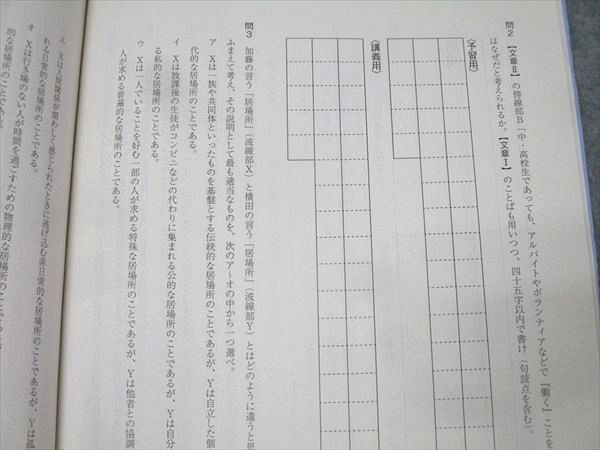 問2 【文章Ⅱ】の傍線部B「中・高校生であっても、アルバイトやボランティアなどで『働く』ことを
はなぜだと考えられるか。【文章Ⅰ】のことばも用いつつ、四十五字以内で書け（句読点を含む）。
〈予習用〉
〈講義用〉
問3 加藤の言う「居場所」（波線部X）と横田の言う「居場所」（波線部Y）とはどのように違うと思
ふまえて考え、その説明として最も適当なものを、次のア〜オの中から一つ選べ。
ア Xは一族や共同体といったものを基盤とする伝統的な居場所のことであるが、Yは自立した個
代的な居場所のことである。
イ Xは放課後の生徒がコンビニなどの代わりに集まれる公的な居場所のことであるが、Yは自分
る私的な居場所のことである。
ウ Xは一人でいることを好む一部の人が求める特殊な居場所のことであるが、Yは他者との協調
人が求める普遍的な居場所のことである。
エ Xは人間関係が煩わしく感じられたときに逃げ込む非日常的な居場所のことであるが、Yは孤
れる日常的な居場所のことである。
オ Xは行き場のない人が時間を過ごすための物理的な居場所のことで
的な居場所のことである。